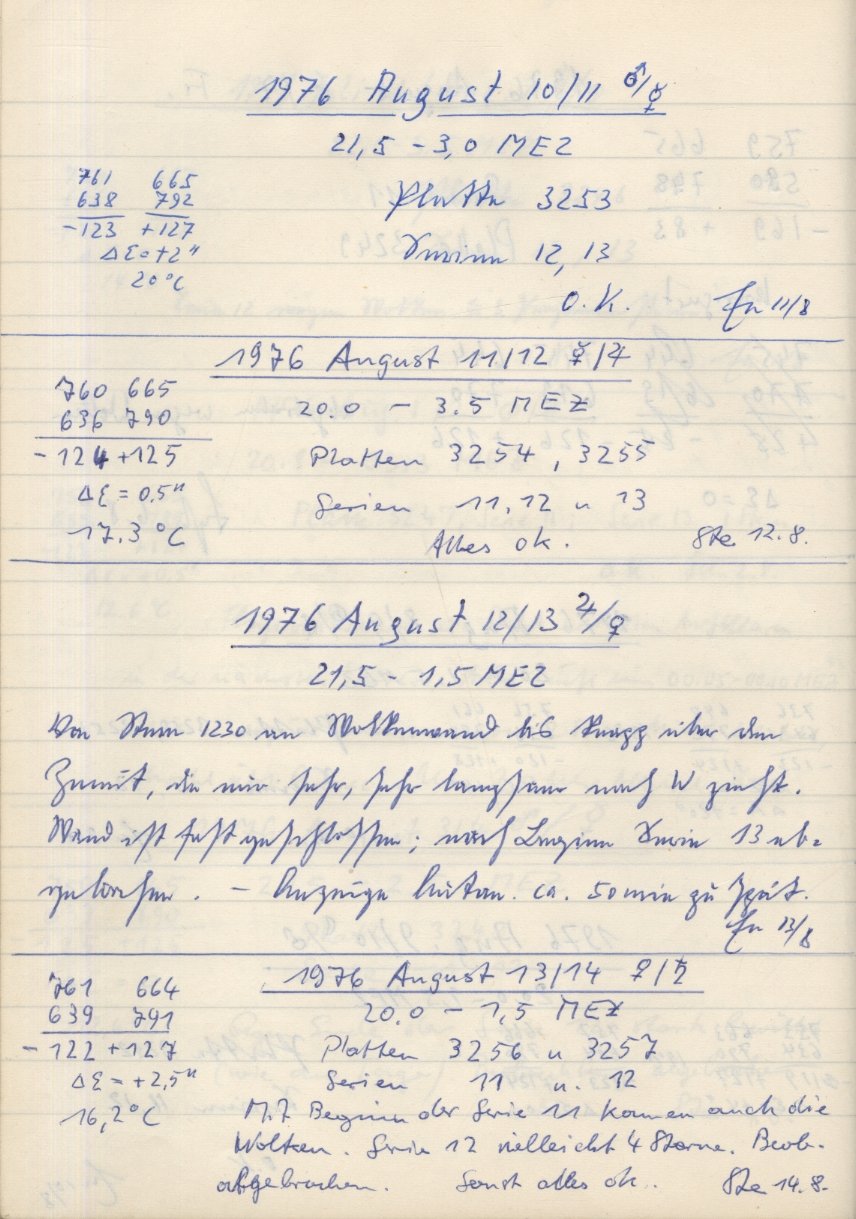 1976 August 10/11 ♂/☿
21,5 – 3,0 MEZ
761 665
638 792
-123 +127
Δε=+2"
20°C
Platte 3253
Serien 12, 13
O.K. 11/8
1976 August 11/12 ☿/♃
760 665
636 790
-124 +125
Δε = 0.5"
17.3°C
20.0 – 3.5 MEZ
Platten 3254, 3255
Serien 11, 12 u 13
Alles ok. Ste 12.8.
1976 August 12/13 ♃/♀
21,5 – 1,5 MEZ
Von Stern 1230 an Wolkenwand bis knapp über den
Zenit, die nur sehr, sehr langsam nach W zieht.
Wand ist fast geschlossen; nach Beginn Serie 13 ab-
gebrochen. – Anzeige ca. 50 min zu spät.
13/8
1976 August 13/14 ♀/♄
761 664
639 791
-122 +127
Δε = +2,5"
16,2°C
20.0 – 1,5 MEZ
Platten 3256 u 3257
Serien 11 u. 12
Mit Beginn der Serie 11 kamen auch die
Wolken. Serie 12 vielleicht 4 Sterne. Beob.
abgebrochen. Sonst alles ok. Ste 14.8.